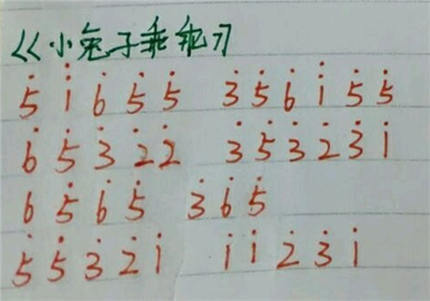 《小兔子乖乖》
5̇ i̇ 6̇ 5̇ 5̇  3̇ 5̇ 6̇ i̇ 5̇ 5̇
6̇ 5̇ 3̇ 2̇ 2̇  3̇ 5̇ 3̇ 2̇ 3̇ i
6 5̇ 6̇ 5̇  3̇ 6̇ 5̇
5̇ 5̇ 3̇ 2̇ i  i i 2̇ 3̇ i